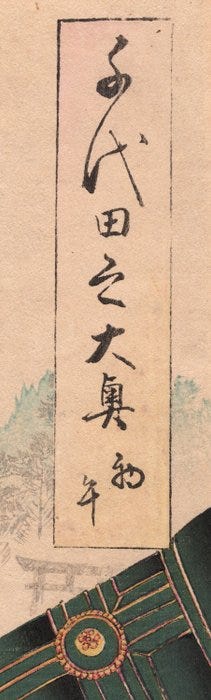 千代田之大奥
初午